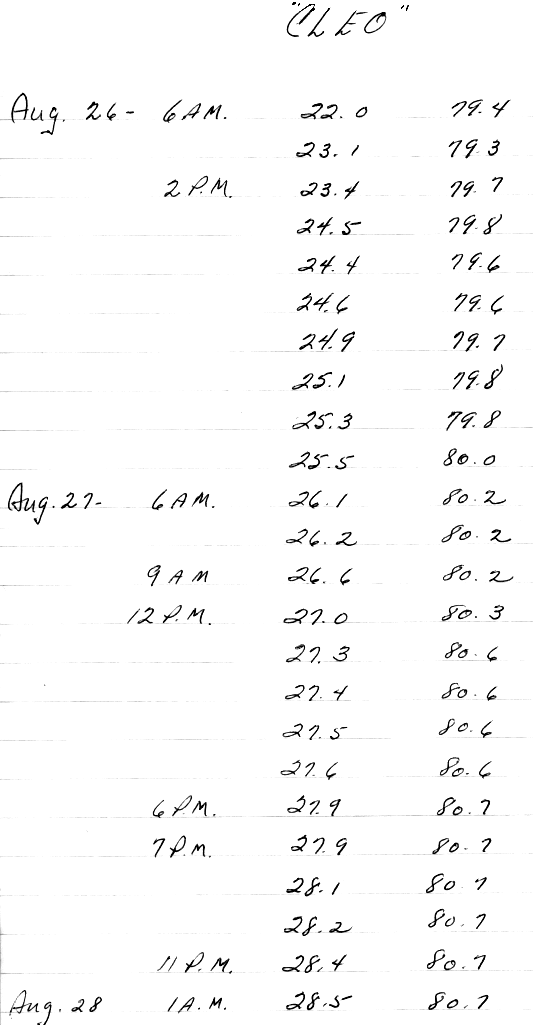 "CLEO"
Aug. 26- 6 AM. 22.0 79.4
23.1 79.3
2 P.M. 23.4 79.7
24.5 79.8
24.4 79.6
24.6 79.6
24.9 79.7
25.1 79.8
25.3 79.8
25.5 80.0
Aug. 27- 6 AM. 26.1 80.2
26.2 80.2
9 AM 26.6 80.2
12 P.M. 27.0 80.3
27.3 80.6
27.4 80.6
27.5 80.6
27.6 80.6
6 P.M. 27.9 80.7
7 P.M. 27.9 80.7
28.1 80.7
28.2 80.7
11 P.M. 28.4 80.7
Aug. 28 1 A.M. 28.5 80.7